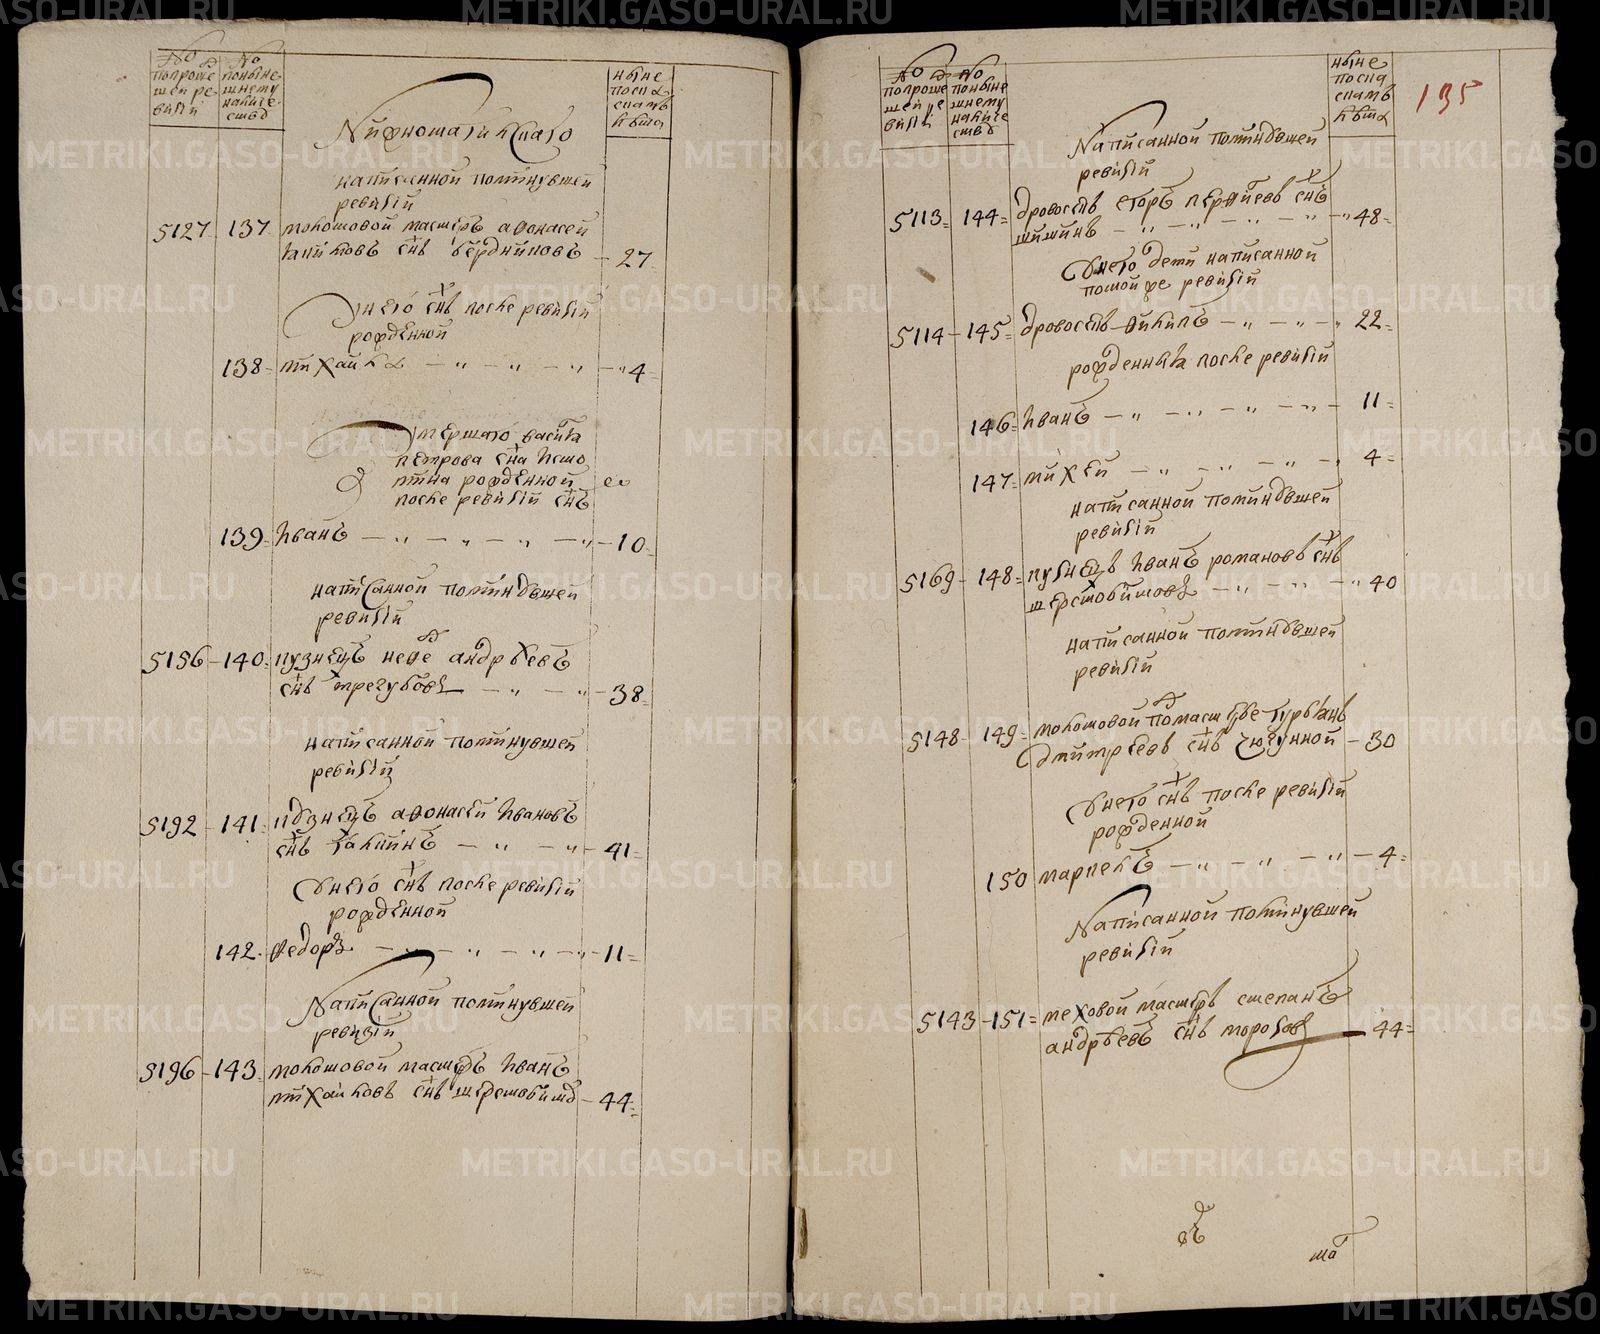 № по проше
шей ре
визии
№ по ныне
шнему
наличе
ству
ныне
по спи
скамъ
лѣта
Нижнотагилскаго
написанной поминувшей
ревизии
5127 137 молотовой мастеръ афонасей
снъ бердниковъ 27
у него снъ после ревизии
рожденной
138 михаила 4
умершаго
петрова сна
рожденной ео
после ревизии снъ
139 Иванъ 10
написанной поминувшей
ревизии
5156 140 кузнецъ андрѣевъ
снъ трегубовъ 38
написанной поминувшей
ревизии
5192 141 кузнецъ афонасей Ивановъ
снъ 41
у него снъ после ревизии
рожденной
142 федоръ 11
Написанной поминувшей
ревизии
5196 143 молотовой мастеръ Иванъ
михайловъ снъ шерстобитовъ 44
№ по проше
шей ре
визии
№ по ныне
шнему
наличе
ству
ныне
по спи
скамъ
лѣта
135
Написанной поминувшей
ревизии
5113 144 дровосекъ егоръ снъ
шишинъ 48
у него дети написанной
по той же ревизии
5114 145 дровосекъ 22
рожденныя после ревизии
146 Иванъ 11
147 михей 4
написанной поминувшей
ревизии
5169 148 кузнецъ Иванъ романовъ снъ
шерстобитовъ 40
написанной поминувшей
ревизии
5148 149 молотовой подмастерье
дмитреевъ снъ 30
у него снъ после ревизии
рожденной
150 карпенъ 4
Написанной поминувшей
ревизии
5143 151 меховой мастеръ степанъ
андрѣевъ снъ морозовъ 44